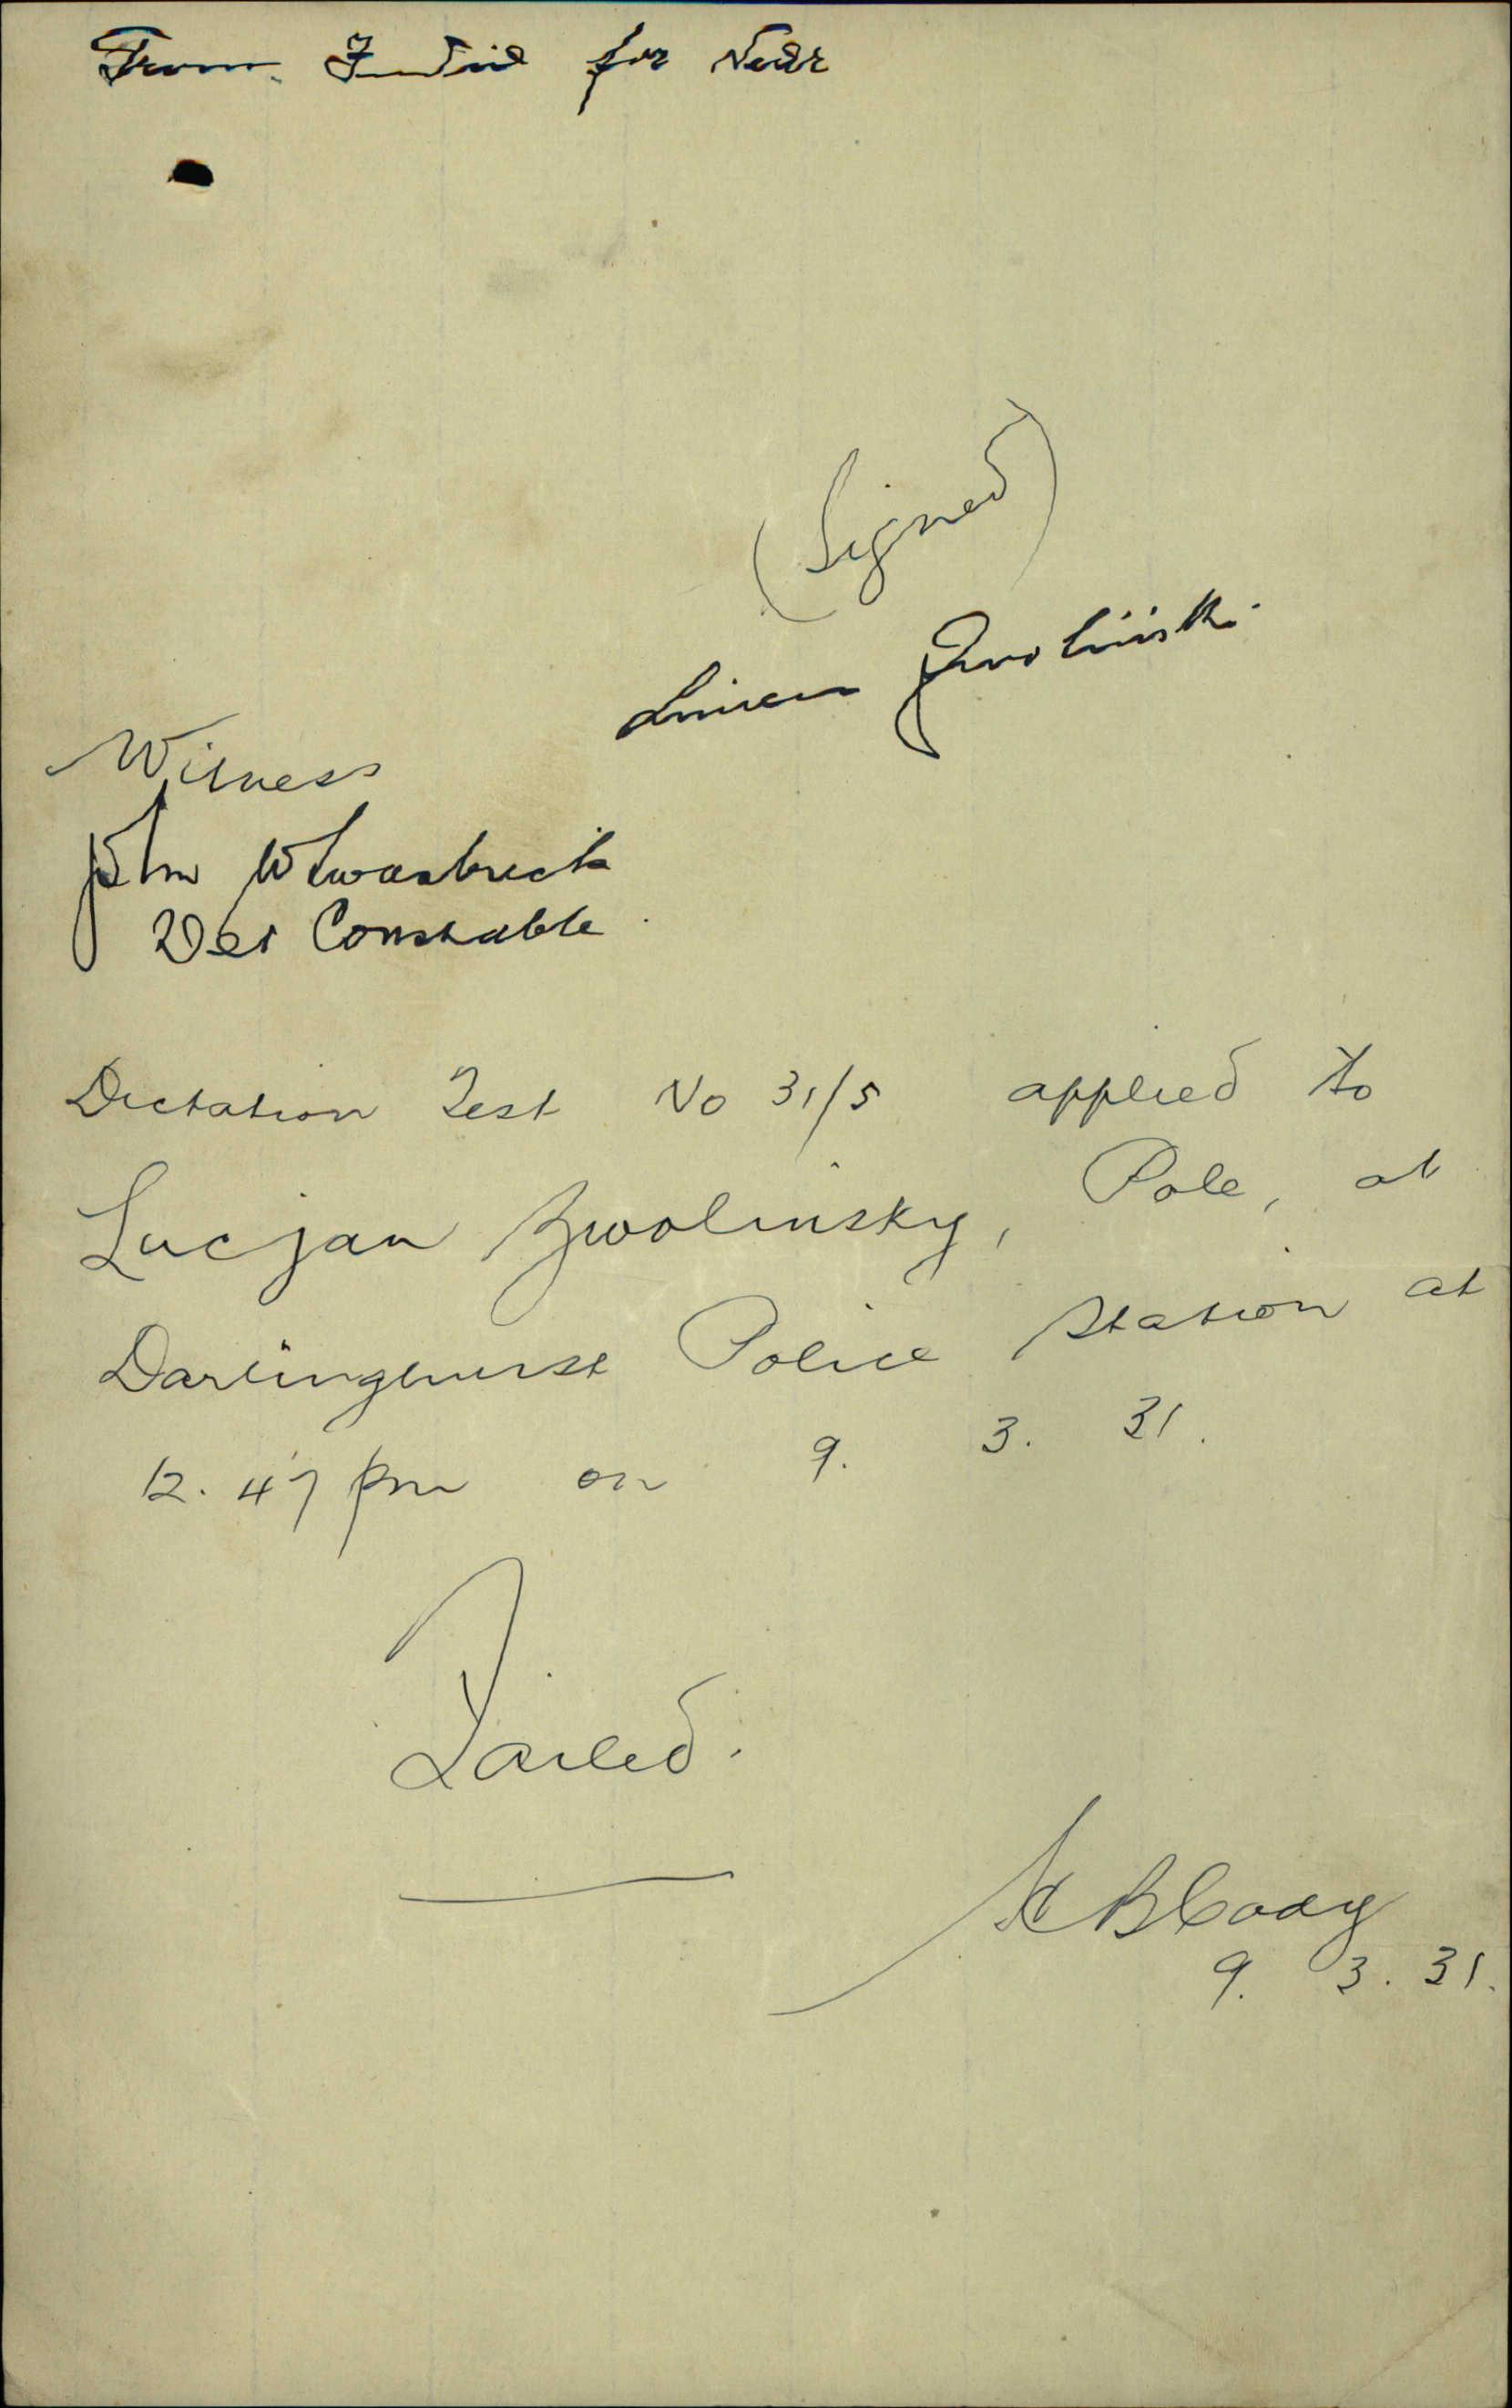 From for
(Signed)
Lucian Zwolinski
Witness
John W Swasbrick
Det Constable
Dictation Test No 31/5 applied to
Lucjan Zwolinsky, Pole, at
Darlinghurst Police Station at
12.47 pm on 9. 3. 31.
Failed.
9. 3. 31.